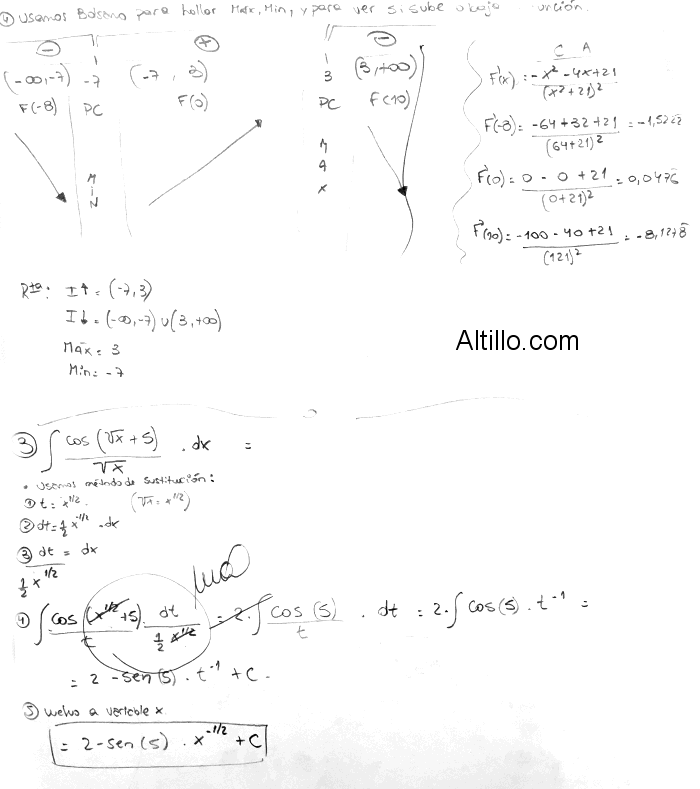 ④ Usamos Bolzano para hallar Max, Min, y para ver si sube o baja función.
⊖ ⊕ ⊖
(-∞,-7) -7 (-7, 3) 3 (3,+∞)
F(-8) PC F(0) PC F(10)
MIN MAX
C A
F'(x) = -x² - 4x + 21 / (x² + 21)²
F'(-8) = -64 + 32 + 21 / (64 + 21)² = -1,5222
F'(0) = 0 - 0 + 21 / (0 + 21)² = 0,0476
F'(10) = -100 - 40 + 21 / (121)² = -8,1278
Rta: I↑ = (-7,3)
I↓ = (-∞,-7) ∪ (3,+∞)
Max = 3
Min = -7
Altillo.com
③ ∫ cos (√x + 5) / √x . dx =
• Usamos método de sustitución:
① t = x^1/2. (√x = x^1/2)
② dt = 1/2 x^-1/2 . dx
③ dt / 1/2 x^1/2 = dx
Mal
④ ∫ cos (x^1/2 + 5) / t . dt / 1/2 x^1/2 = 2. ∫ cos (5) / t . dt = 2. ∫ cos(5) . t^-1 =
= 2 - sen (5) . t^-1 + C.
⑤ Vuelvo a variable x.
= 2 - sen (5) . x^-1/2 + C